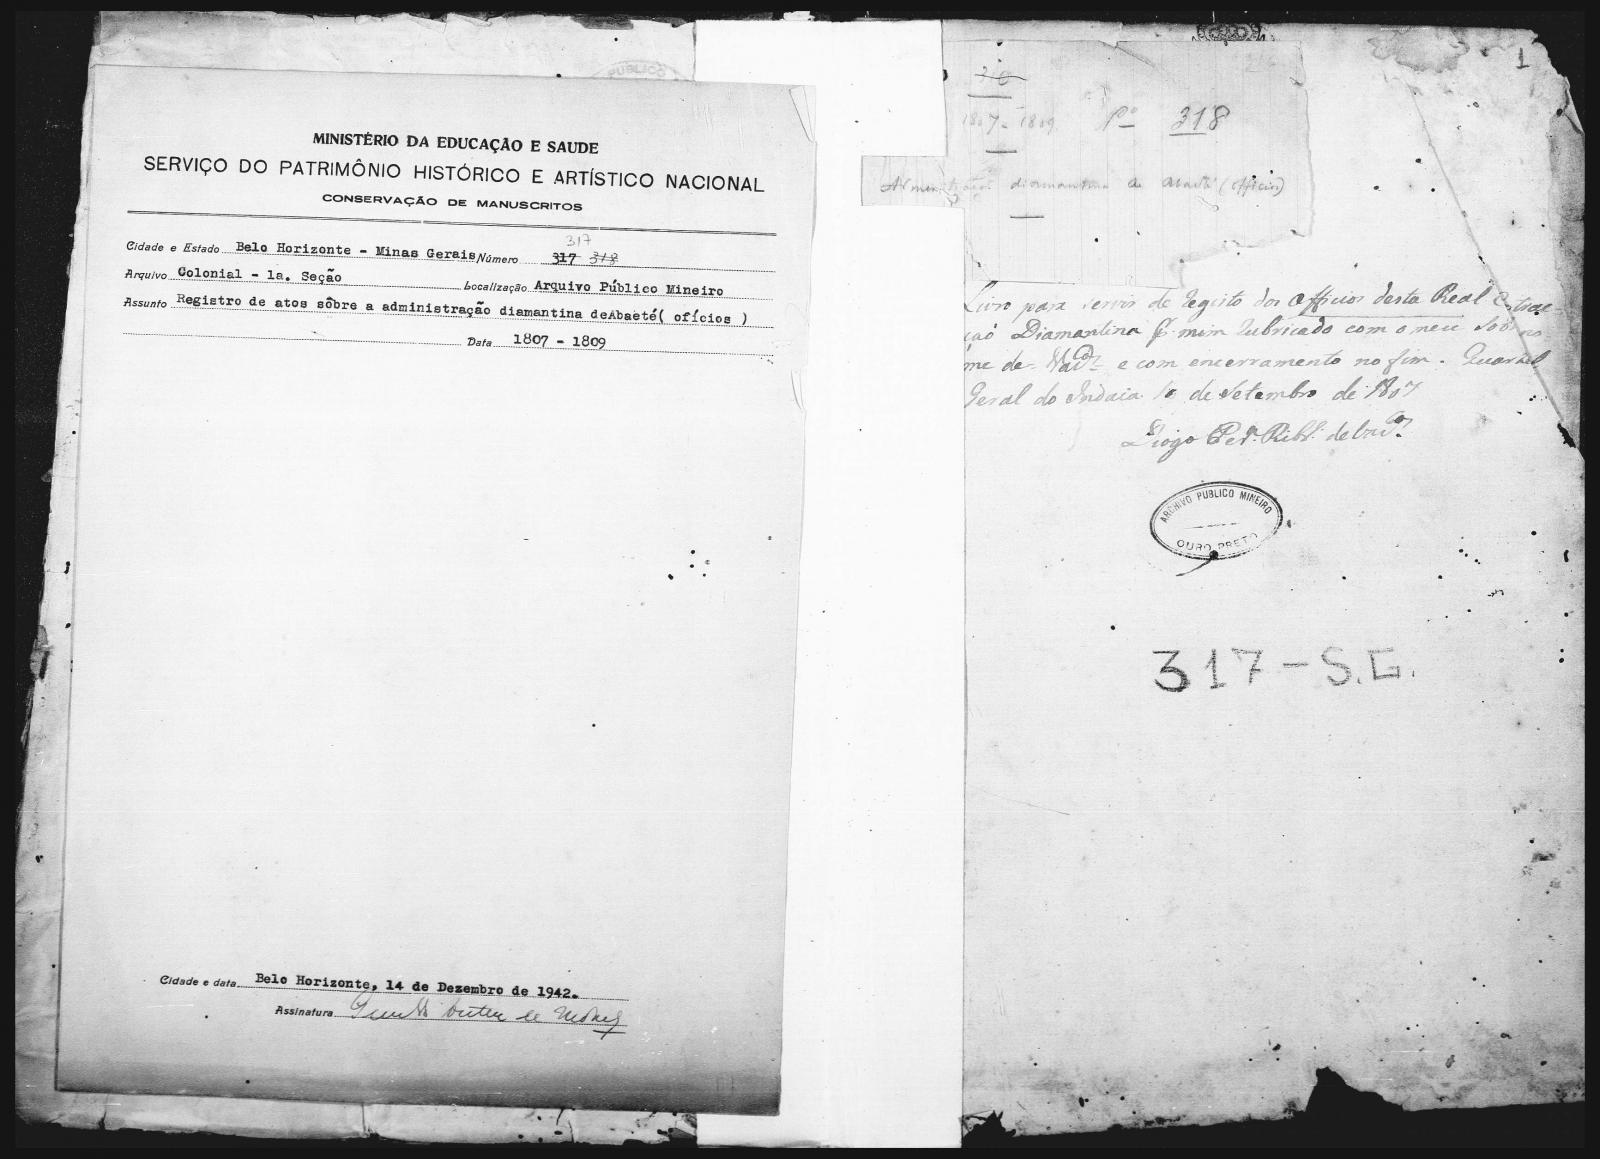 MINISTÉRIO DA EDUCAÇÃO E SAUDE
SERVIÇO DO PATRIMÔNIO HISTÓRICO E ARTÍSTICO NACIONAL
CONSERVAÇÃO DE MANUSCRITOS
317
Cidade e Estado Belo Horizonte - Minas Gerais Número 317 318
Arquivo Colonial - 1a. Seção Localização Arquivo Público Mineiro
Assunto Registro de atos sôbre a administração diamantina deAbaeté( ofícios )
Data 1807 - 1809
Cidade e data Belo Horizonte, 14 de Dezembro de 1942.
Assinatura
PUBLICO
1
1807 - 1809 Pº 318
diamantina (officios)
Livro para servir de registo dos officios desta Real Extrac-
çaõ Diamantina rubricado com o meu Sobrno
me de e com encerramento no fim. Quartel
Geral do Indaia 10 de Setembro de 1807
Diogo
ARCHIVO PUBLICO MINEIRO
OURO PRETO
317 - S.G.